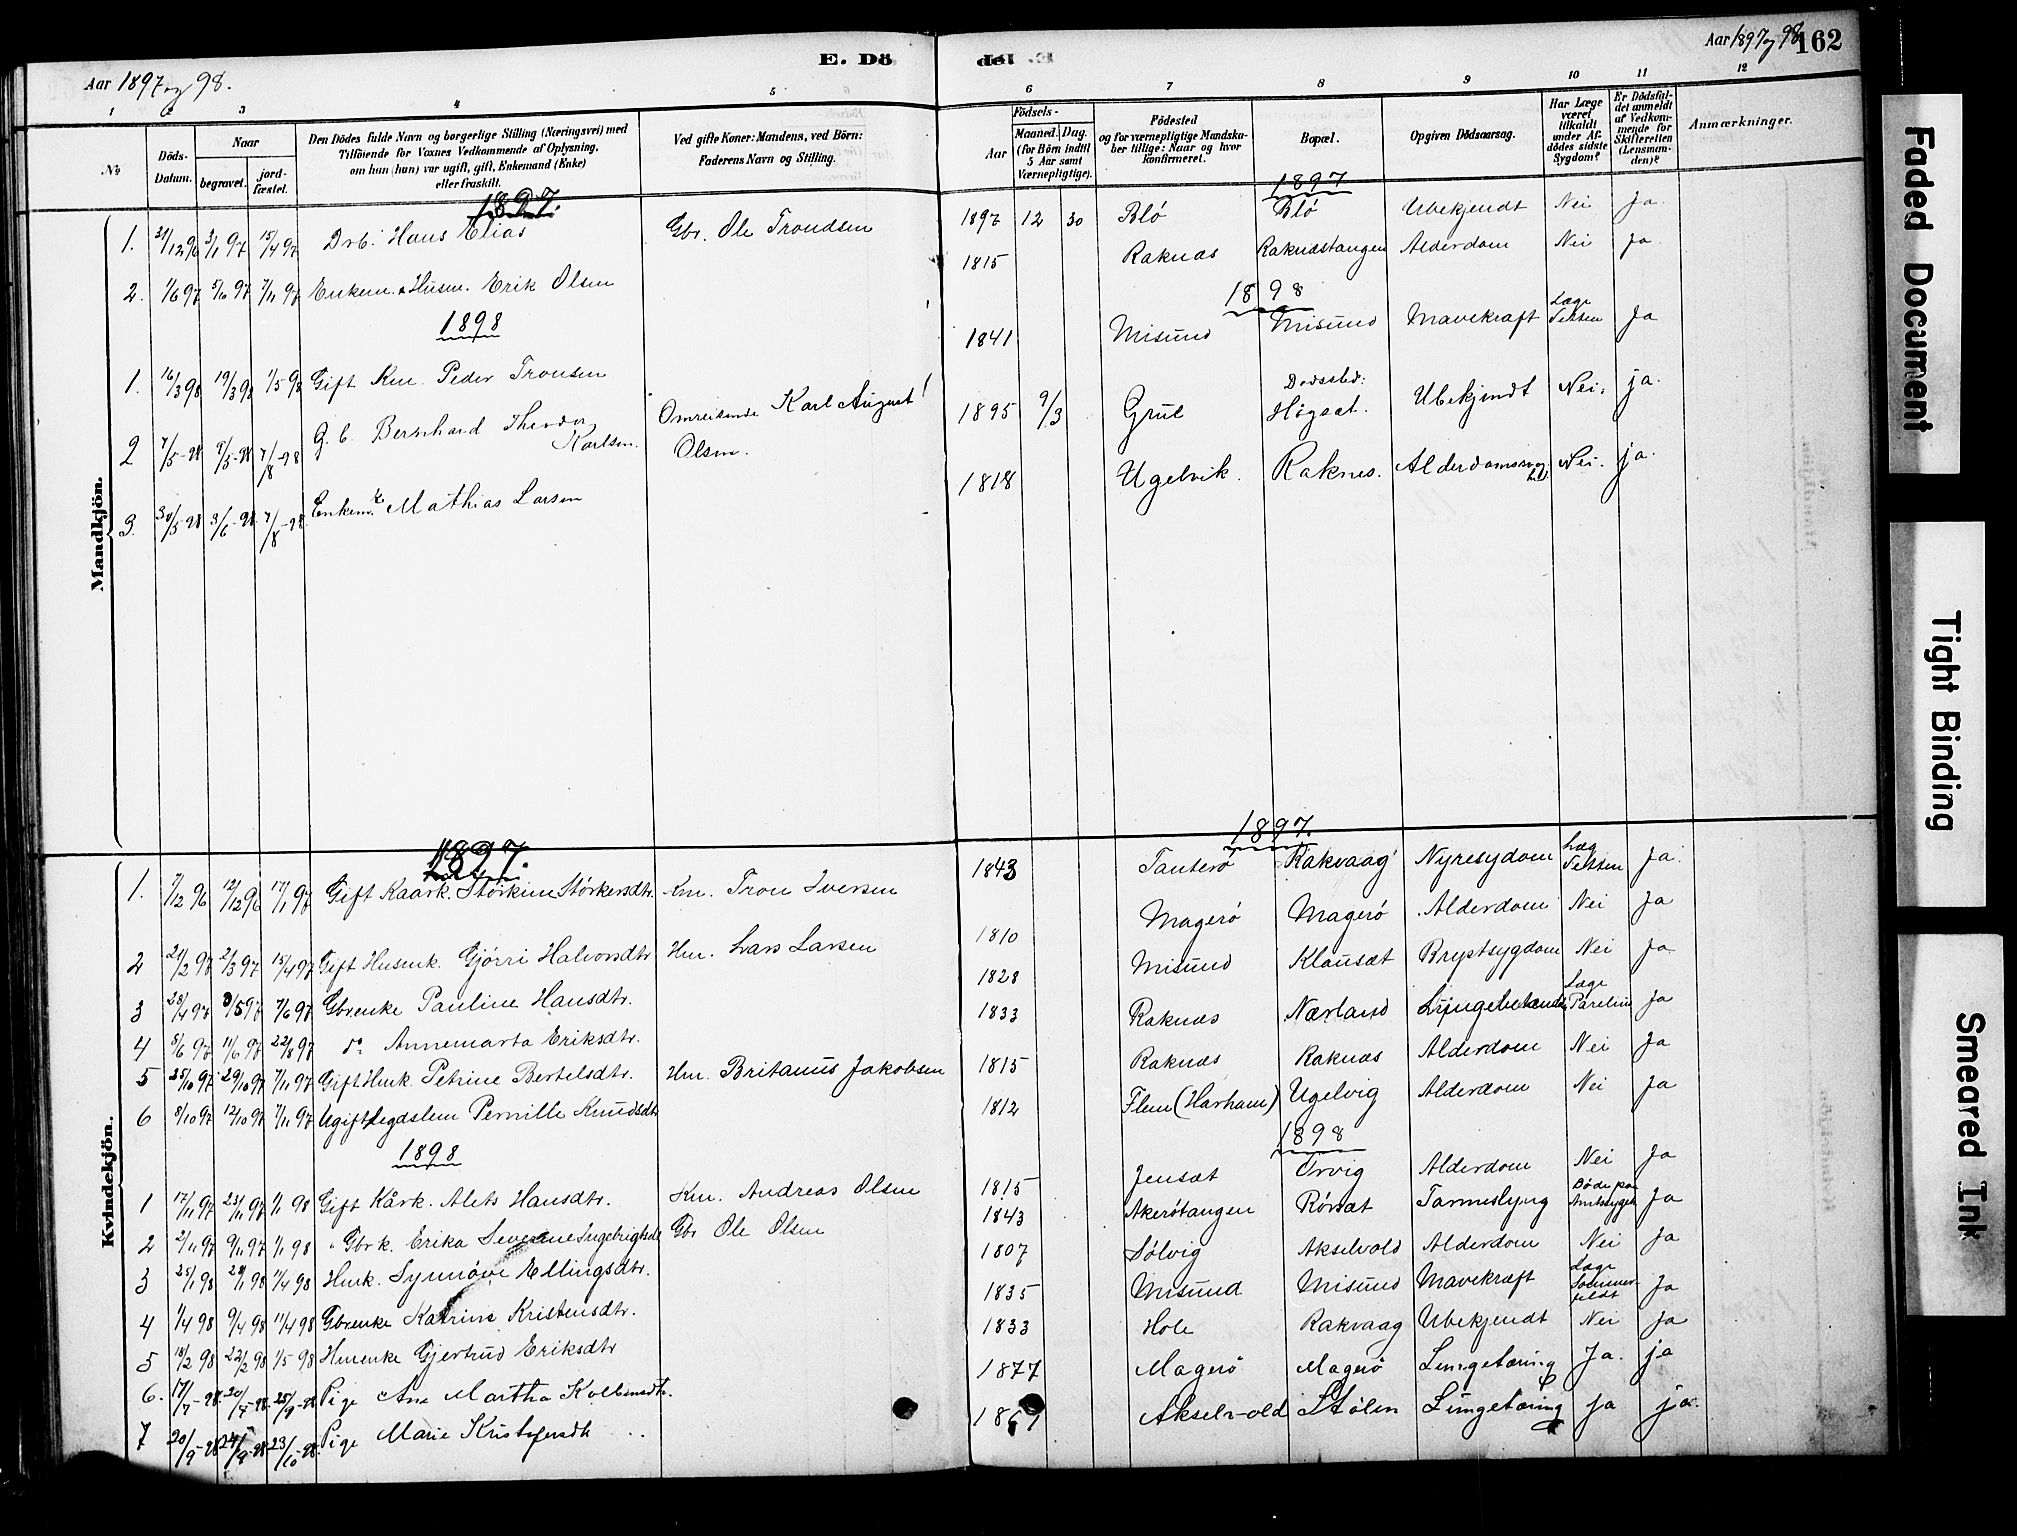 Aar 1897 og 98.
E. Dö
de. E
Aar 1897 og 98. 162
1 2 3 4 5 6 7 8 9 10 11 12
№
Döds-Datum.
Naar
begravet.
jord-fæstet.
Den Dödes fulde Navn og borgerlige Stilling (Næringsvei) med
Tilföiende for Voxnes Vedkommende af Oplysning,
om han (hun) var ugift, gift, Enkemand (Enke)
eller fraskilt.
Ved gifte Koner: Mandens, ved Börn:
Faderens Navn og Stilling.
Födsels-
Aar
Maaned. Dag.
(for Börn indtil
5 Aar samt
Værnepligtige).
Födested
og for værnepligtige Mandska-
ber tillige: Naar og hvor
konfirmeret.
Bopæl.
Opgiven Dödsaarsag.
Har Læge
været
tilkaldt
under Af-
dödes sidste
Sygdom?
Er Dödsfal-
det anmeldt
af Vedkom-
mende for
Skifteretten
(Lensman-
den)?
Anmærkninger.
Mandkjön.
1897. 1897
1. 31/12 96 3/1 97 15/4 97 Drb. Hans Elias Gbr. Ole Trondsen 1897 12 30 Blö Blö Ubekjendt Nei Ja.
2. 1/6 97 5/6 97 7/11 97 Enkem. Husm. Erik Olsen 1815 Raknæs Raknæstangen Alderdom Nei Ja
1898 1898
1. 16/3 98 19/3 98 1/5 98 Gift Km. Peder Tronsen 1841 Misund Misund Mavekraft Læge Ja
2 7/5-98 9/5-98 7/8-98 G. b. Bernhard Theodor Karlsen. Omreisende Karl August Olsen. 1895 9/3 Grue Dødssted: Høgset. Ubekjendt Nei. ja.
3. 30/5-98 3/6-98 7/8-98 Enkem. Mathias Larsen 1818 Ugelvik. Raknes. Nei. ja.
Kvindekjön.
1897. 1897.
1. 7/12 96 12/12 96 17/1 97 Gift Kaark. Störkine Störkersdtr. Km. Tron Iversen 1843 Tauterö Rakvaag Nyresydom Ja.
2 21/2 97 2/3 97 15/4 97 Gift Husmk. Gjörri Halvorsdtr Hm. Lars Larsen 1810 Magerö Magerö Alderdom Nei Ja
3 28/4 97 3/5 97 7/6 97 Gbrenke Pauline Hansdtr. 1828 Misund Klausæt Brystsygdom Nei Ja
4 5/6 97 11/6 97 22/8 97 do Annemarta Eriksdtr. 1833 Raknæs Nærland Læge Ja
5 25/10 97 29/10 97 7/11 97 Gift Hmk. Petrine Bertelsdtr. Hm. Britanus Jakobsen 1815 Raknæs Raknæs Alderdom Nei Ja
6 8/10 97 12/10 97 7/11 97 Ugift Legdslem Pernille Knudsdtr 1812 Flem (Harham) Ugelvig Alderdom Nei Ja
1898 1898
1 17/11 97 23/11 97 1/1 98 Gift Kårk. Alets Hansdtr. Km. Andreas Olsen 1815 Jensæt Orvig Alderdom Nei Ja
2 2/11 97 9/11 97 1/1 98 " Gbrk. Erika Severine Gbr Ole Olsen 1843 Akerötangen Rönsæt Tarmeslyng Ja
3 25/1 98 29/1 98 11/4 98 Hmk. Synnöve Ellingsdtr. 1807 Sölvig Akselvold Alderdom Nei Ja
4 1/4 98 9/4 98 11/4 98 Gbrenke Katrine Kristensdtr. 1835 Misund Misund Mavekræft Læge Sommerfeldt Ja
5 18/2 98 22/2 98 1/5 98 Hmenke Gjertrud Eriksdtr 1833 Hole Rakvaag Ubekjendt Nei Ja
6. 17/7-98. 20/7-98. 25/9-98 Pige Ane Martha Kolbensdtr. 1877 Magerö Magerö Lungetæring Ja. ja
7 20/9-98 24/9-98 23/10-98. Pige Marie Kristofersdtr Akselvold Stölen Lungetæring Ja ja.
Faded Document
Tight Binding
Smeared Ink